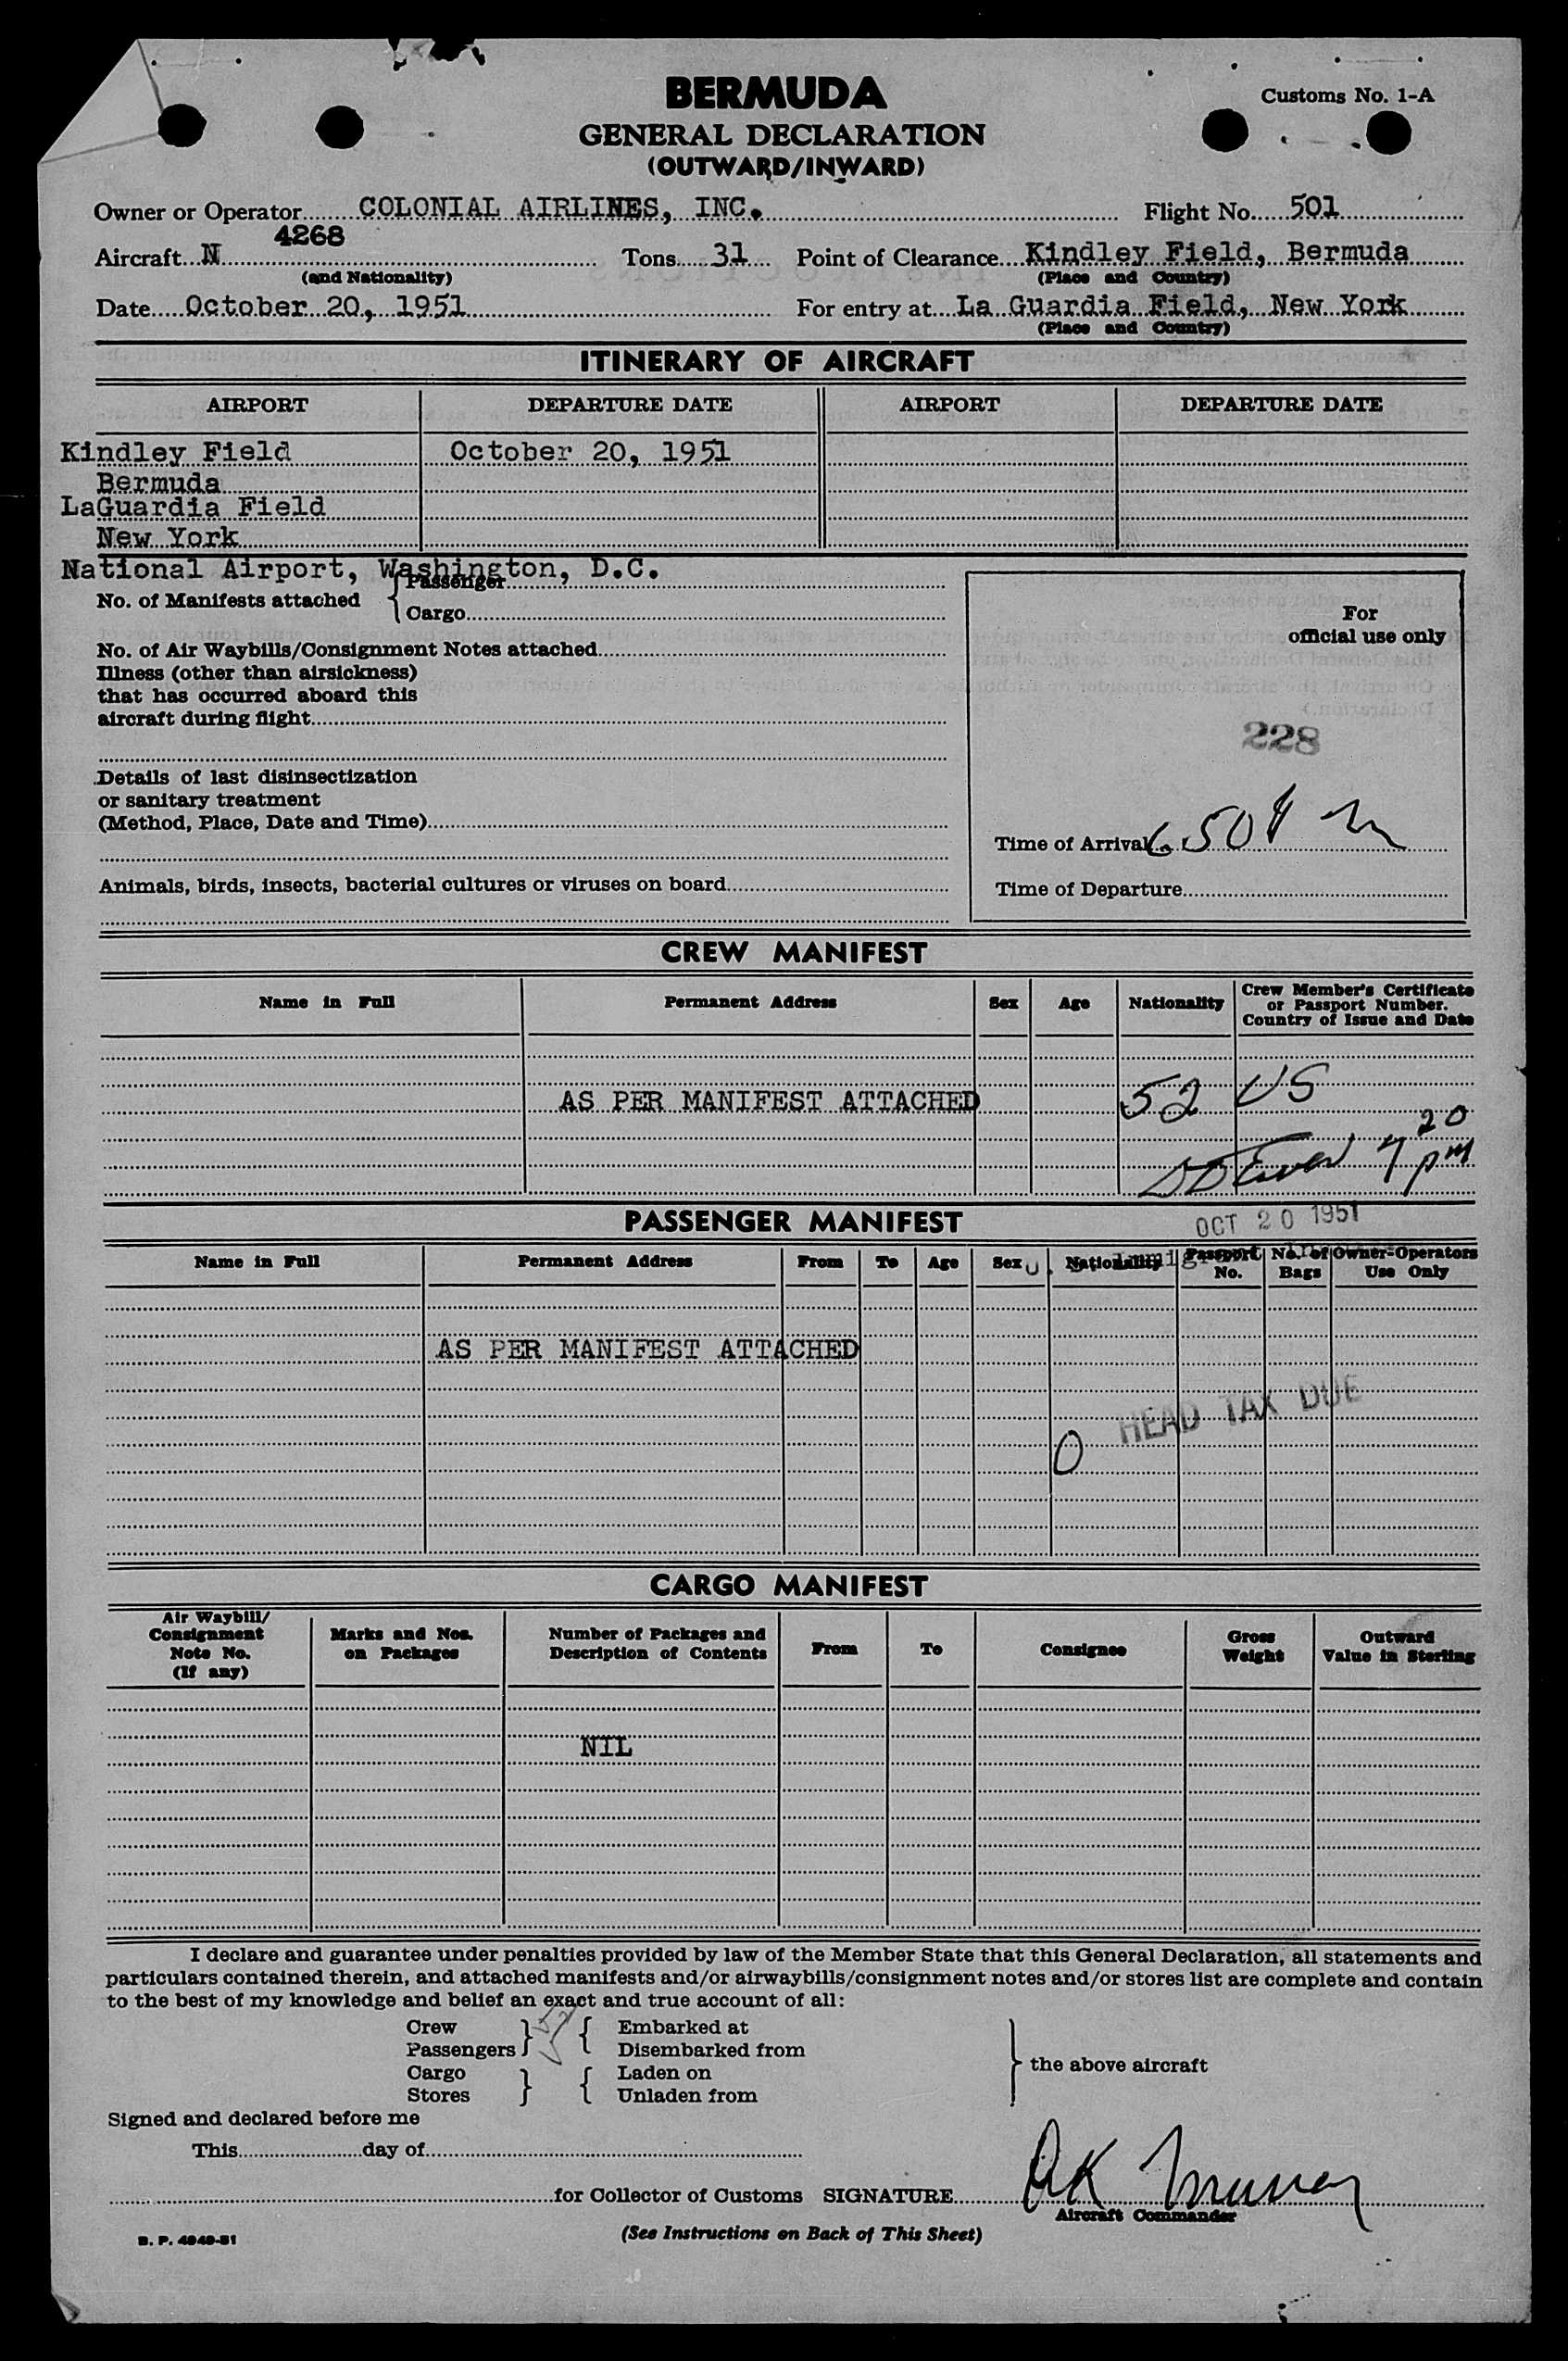 BERMUDA
Customs No. 1-A
GENERAL DECLARATION
(OUTWARD/INWARD)
Owner or Operator COLONIAL AIRLINES, INC. Flight No. 501
Aircraft N 4268 Tons 31 Point of Clearance Kindley Field, Bermuda
(and Nationality) (Place and Country)
Date October 20, 1951 For entry at La Guardia Field, New York
(Place and Country)
ITINERARY OF AIRCRAFT
AIRPORT DEPARTURE DATE AIRPORT DEPARTURE DATE
Kindley Field October 20, 1951
Bermuda
LaGuardia Field
New York
National Airport, Washington, D.C.
No. of Manifests attached { Passenger
Cargo
For
official use only
No. of Air Waybills/Consignment Notes attached
Illness (other than airsickness)
that has occurred aboard this
aircraft during flight
228
Details of last disinsectization
or sanitary treatment
(Method, Place, Date and Time)
Time of Arrival 6 50 P m
Animals, birds, insects, bacterial cultures or viruses on board
Time of Departure
CREW MANIFEST
Name in Full Permanent Address Sex Age Nationality Crew Member's Certificate or Passport Number. Country of Issue and Date
AS PER MANIFEST ATTACHED 52 US
7 20 pm
PASSENGER MANIFEST
OCT 20 1951
Name in Full Permanent Address From To Age Sex Nationality Passport No. No. of Bags Owner-Operators Use Only
AS PER MANIFEST ATTACHED
0 HEAD TAX DUE
CARGO MANIFEST
Air Waybill/ Consignment Note No. (If any) Marks and Nos. on Packages Number of Packages and Description of Contents From To Consignee Gross Weight Outward Value in Sterling
NIL
I declare and guarantee under penalties provided by law of the Member State that this General Declaration, all statements and
particulars contained therein, and attached manifests and/or airwaybills/consignment notes and/or stores list are complete and contain
to the best of my knowledge and belief an exact and true account of all:
Crew Embarked at
Passengers } 52 { Disembarked from
the above aircraft
Cargo Laden on
Stores } { Unladen from
Signed and declared before me
This day of
for Collector of Customs SIGNATURE
Aircraft Commander
B. P. 4949-51
(See Instructions on Back of This Sheet)